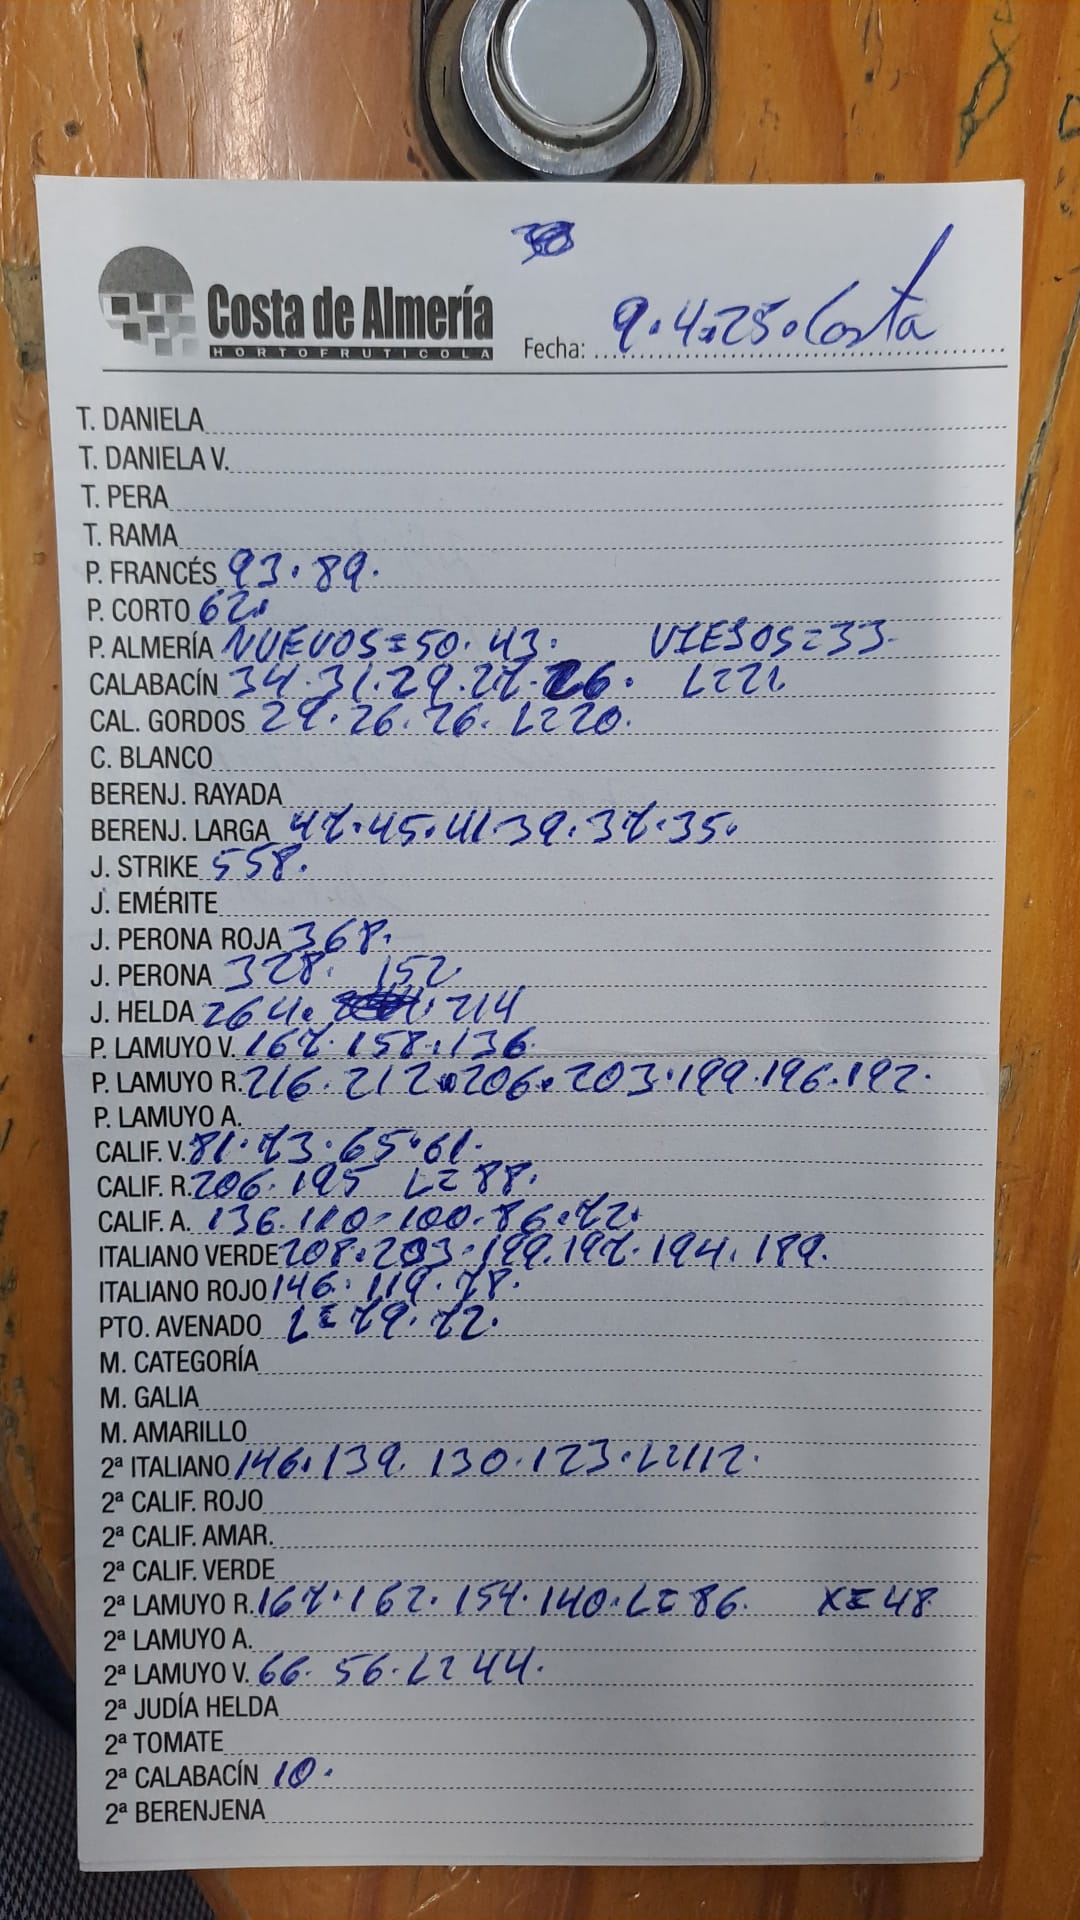 Costa de Almería
HORTOFRUTICOLA
Fecha: 9.4.25. Costa
T. DANIELA
T. DANIELA V.
T. PERA
T. RAMA
P. FRANCÉS 93. 89.
P. CORTO 62.
P. ALMERÍA NUEVOS=50. 43. VIEJOS=33.
CALABACÍN 34. 31. 29. 27. 26. L=21.
CAL. GORDOS 27. 26. 26. L=20.
C. BLANCO
BERENJ. RAYADA
BERENJ. LARGA 47. 45. 41. 39. 37. 35.
J. STRIKE 558.
J. EMÉRITE
J. PERONA ROJA 368.
J. PERONA 328. 152
J. HELDA 264. 214
P. LAMUYO V. 167. 158. 136.
P. LAMUYO R. 216. 212. 206. 203. 199. 196. 192.
P. LAMUYO A.
CALIF. V. 81. 73. 65. 61.
CALIF. R. 206. 195 L=88.
CALIF. A. 136. 110. 100. 86. 72.
ITALIANO VERDE 208. 203. 199. 197. 194. 189.
ITALIANO ROJO 146. 119. 78.
PTO. AVENADO L=79. 72.
M. CATEGORÍA
M. GALIA
M. AMARILLO
2ª ITALIANO 146. 139. 130. 123. L=112.
2ª CALIF. ROJO
2ª CALIF. AMAR.
2ª CALIF. VERDE
2ª LAMUYO R. 167. 162. 154. 140. L=86. X=48
2ª LAMUYO A.
2ª LAMUYO V. 66. 56. L=44.
2ª JUDÍA HELDA
2ª TOMATE
2ª CALABACÍN 10.
2ª BERENJENA